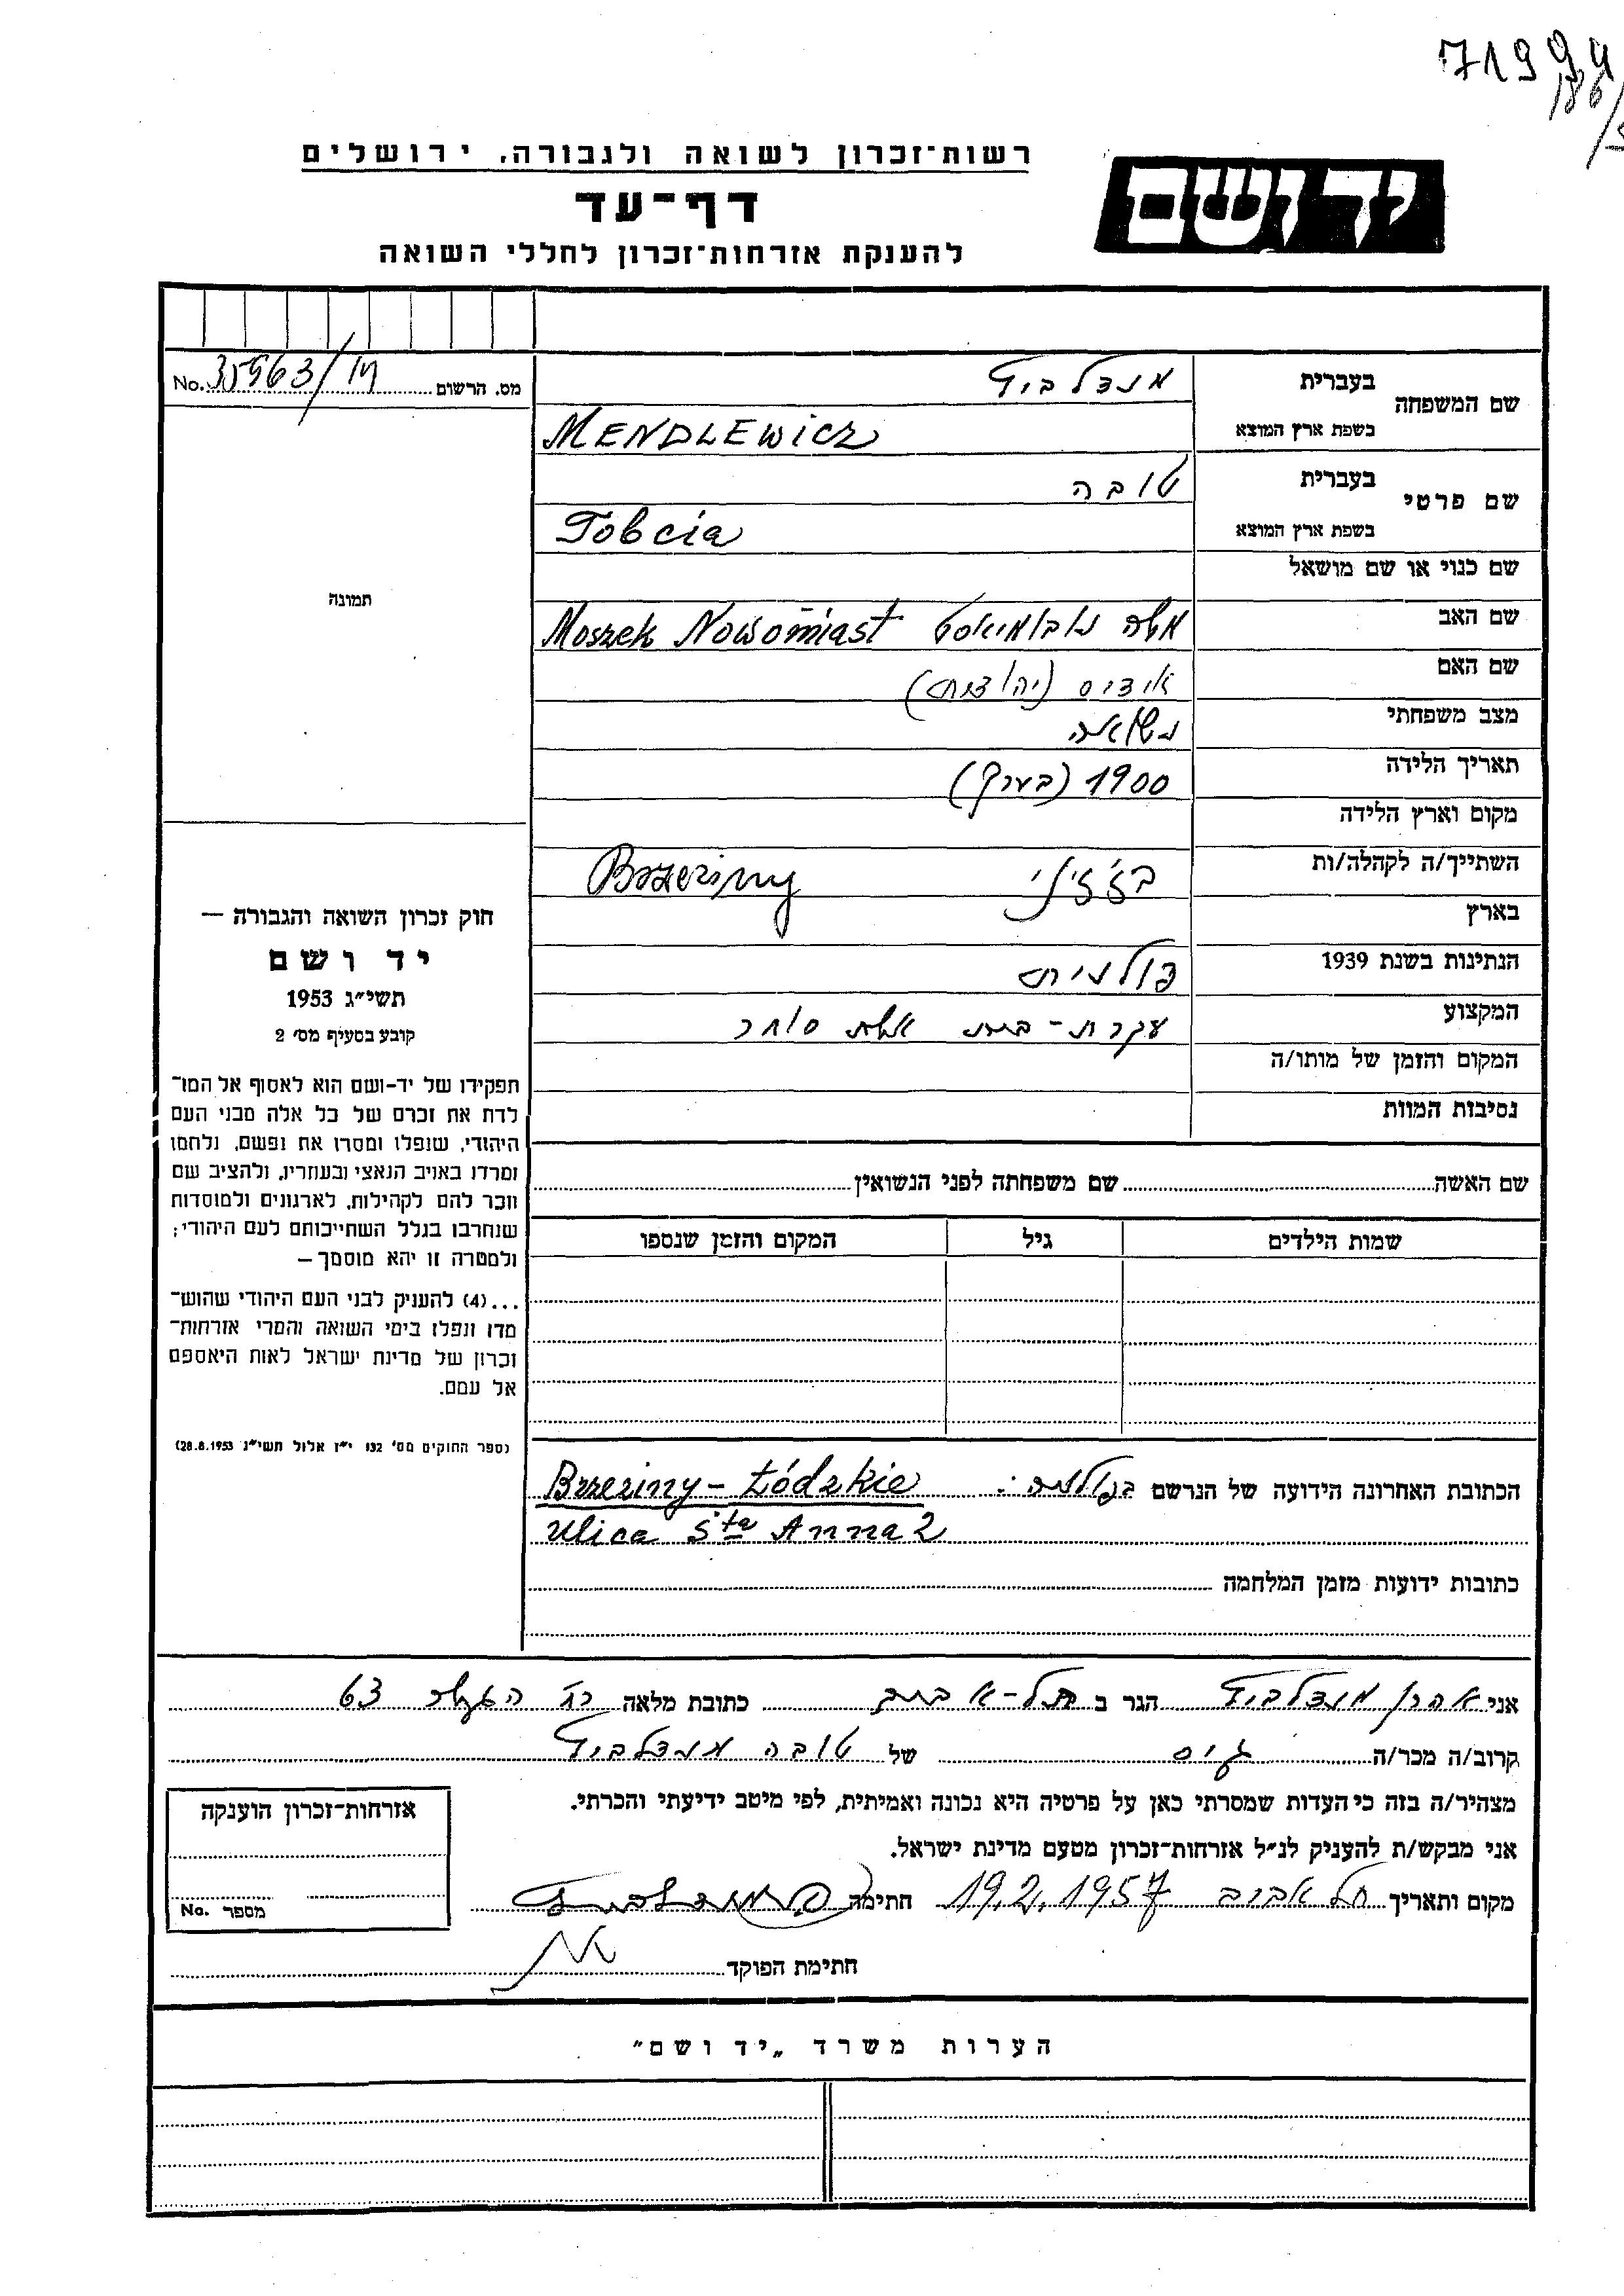 71994
186/
רשות־זכרון לשואה ולגבורה, ירושלים
יד ושם
דף־עד
להענקת אזרחות־זכרון לחללי השואה
שם המשפחה בעברית מנדלביץ
בשפת ארץ המוצא MENDLEWICZ
מס. הרשום No. 35963/מ
שם פרטי בעברית טובה
בשפת ארץ המוצא Tobcia
שם כנוי או שם מושאל
תמונה
שם האב משה נובומיאסט Moszek Nowomiast
שם האם אידיס (יהודית)
מצב משפחתי נשואה
תאריך הלידה 1900 (בערך)
מקום וארץ הלידה
השתייך/ה לקהלה/ות בז'ז'יני Brzeziny
בארץ
הנתינות בשנת 1939 פולנית
המקצוע עקרת-בית אשת סוחר
המקום והזמן של מותו/ה
נסיבות המוות
חוק זכרון השואה והגבורה —
יד ושם
תשי״ג 1953
קובע בסעיף מס׳ 2
תפקידו של יד-ושם הוא לאסוף אל המו־
לדת את זכרם של כל אלה מבני העם
היהודי, שנפלו ומסרו את נפשם, נלחמו
ומרדו באויב הנאצי ובעוזריו, ולהציב שם
וזכר להם לקהילות, לארגונים ולמוסדות
שנחרבו בגלל השתייכותם לעם היהודי;
ולמטרה זו יהא מוסמך —
...(4) להעניק לבני העם היהודי שהוש־
מדו ונפלו בימי השואה והמרי אזרחות־
זכרון של מדינת ישראל לאות היאספם
אל עמם.
(ספר החוקים מס׳ 132 י״ז אלול תשי״ג 28.8.1953)
שם האשה שם משפחתה לפני הנשואין
שמות הילדים גיל המקום והזמן שנספו
הכתובת האחרונה הידועה של הנרשם בפולניה: Brzeziny - Łódzkie
Ulica Sta Anna 2
כתובות ידועות מזמן המלחמה
אני אהרן מנדלביץ הגר ב תל-אביב כתובת מלאה 63
קרוב/ה מכר/ה גיס של טובה מנדלביץ
מצהיר/ה בזה כי העדות שמסרתי כאן על פרטיה היא נכונה ואמיתית, לפי מיטב ידיעתי והכרתי.
אני מבקש/ת להעניק לנ״ל אזרחות־זכרון מטעם מדינת ישראל.
מקום ותאריך תל אביב 19.2.1957 חתימה
חתימת הפוקד
אזרחות־זכרון הוענקה
מספר No.
הערות משרד „יד ושם״